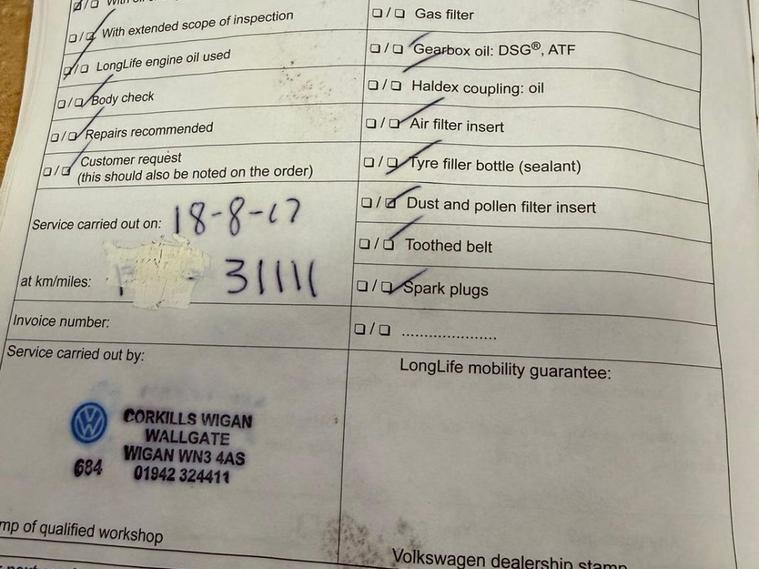 With extended scope of inspection
LongLife engine oil used
Body check
Repairs recommended
Customer request
(this should also be noted on the order)
Service carried out on: 18-8-17
at km/miles: 31111
Invoice number:
Service carried out by:
CORKILLS WIGAN
WALLGATE
WIGAN WN3 4AS
684 01942 324411
mp of qualified workshop
Gas filter
Gearbox oil: DSG®, ATF
Haldex coupling: oil
Air filter insert
Tyre filler bottle (sealant)
Dust and pollen filter insert
Toothed belt
Spark plugs
.....................
LongLife mobility guarantee:
Volkswagen dealership stamp